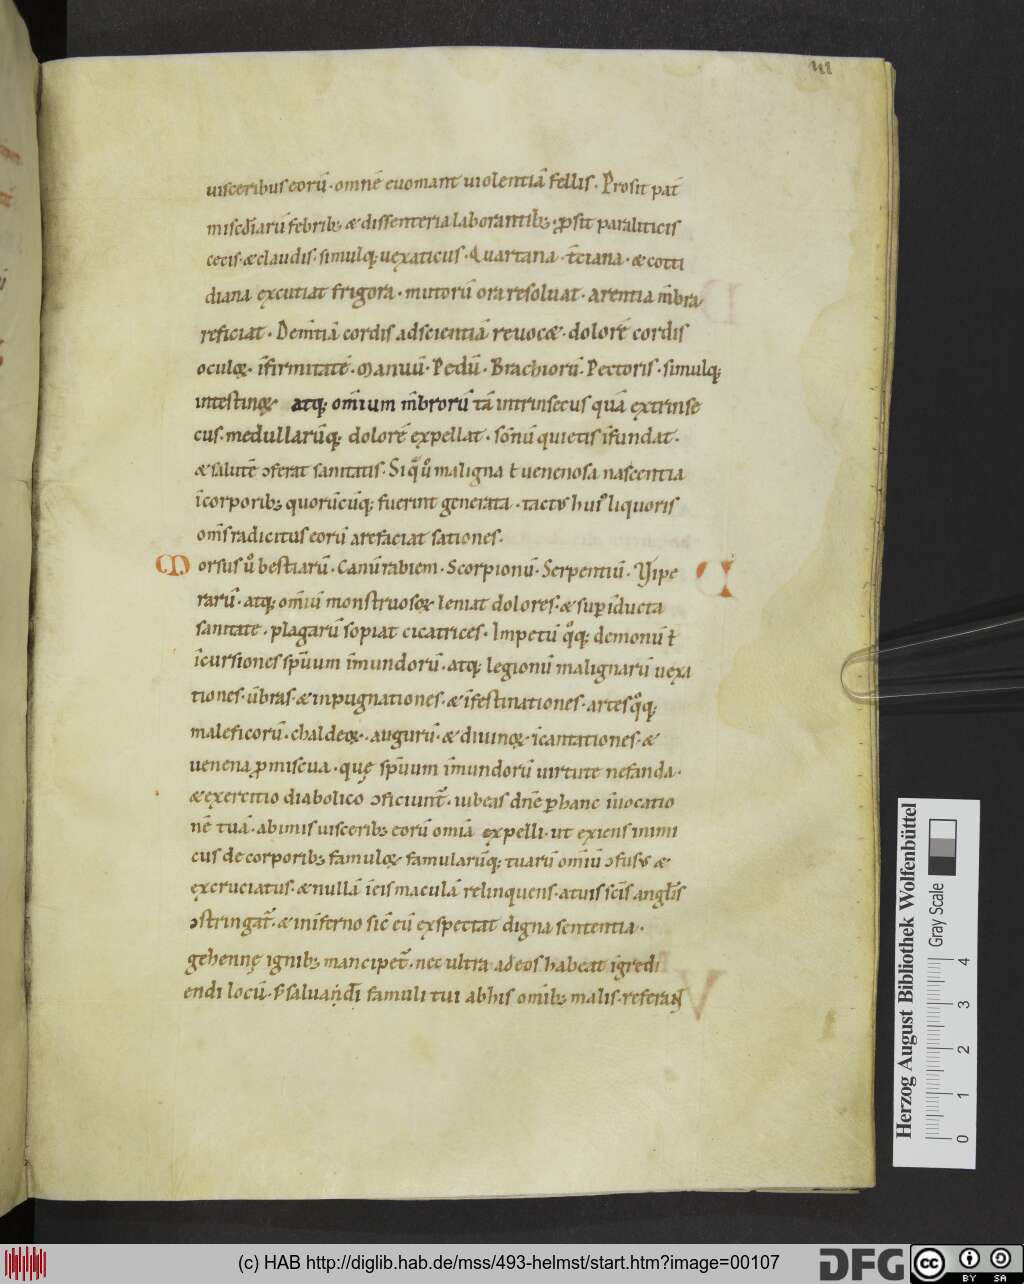 48
uisceribus eorū · omnē euomant uiolentiā fellis · Prosit pat̄
misc̄diarū febribꝫ & dissenteria laborantibꝫ · ꝓsit paraliticis
cecis · & claudis · simulqꝫ uęxaticus · Quartana · t̄ciana · & cotti
diana ęxcutiat frigora · mutorū ora resoluat · arentia m̄bra
reficiat · Dem̄tiā cordis ad scientiā reuoc& · dolorē cordis
oculoꝝ · īfirmitatē · Manuū · Pedū · Brachiorū · Pectoris · simulqꝫ
intestinoꝝ · atqꝫ om̄ium m̄brorū tā intrinsecus quā ęxtrinse
cus · medullarūqꝫ dolorē ęxpellat · sōnū quietis īfundat ·
& salutē ↄferat sanitatis · Si qͣ uͦ maligna ł uenenosa nascentia
ī corporibꝫ quorūcūqꝫ fuerint generata · tactus huiꝰ liquoris
om̄s radicitus eorū arefaciat sationes ·
Morsus uͦ bestiarū · Canū rabiem · Scorpionū · Serpentiū · Vipe
rarū · atqꝫ om̄iū monstruosoꝝ leniat dolores · & sup̄ inducta
sanitate · plagarū sopiat cicatrices · Impetū qͦqꝫ demonū ł
īcursiones sp̄uum īmundorū · atqꝫ legionū malignarū uęxa
tiones · ūbras · & inpugnationes · & īfestinationes · artes qͦqꝫ
maleficorū · chaldeoꝝ · augurū · & diuinoꝝ īcantationes · &
uenena ꝓmiscua · quę sp̄uum īmundorū uirtute nefanda ·
& ęxercitio diabolico ↄficiunt̄ · iubeas dn̄e ꝑ hanc īuocatio
nē tuā · ab imis uisceribꝫ eorū omīa ęxpelli · ut exiens inimi
cus de corporibꝫ famuloꝝ famularūqꝫ tuarū omīū ↄfusus &
ęxcruciatus · & nullā ī eis maculā relinquens · a tuis sc̄is angl̄is
ↄstringat̄ · & in īferno sic̄ eū ęxspectat digna sententia ·
gehennę ignibꝫ mancipet̄ · nec ultra ad eos habeat īgredi
endi locū · s̄ saluandi famuli tui ab his om̄ibꝫ malis · referant
Herzog August Bibliothek Wolfenbüttel
Gray Scale
0 1 2 3 4
(c) HAB http://diglib.hab.de/mss/493-helmst/start.htm?image=00107
DFG
cc BY SA